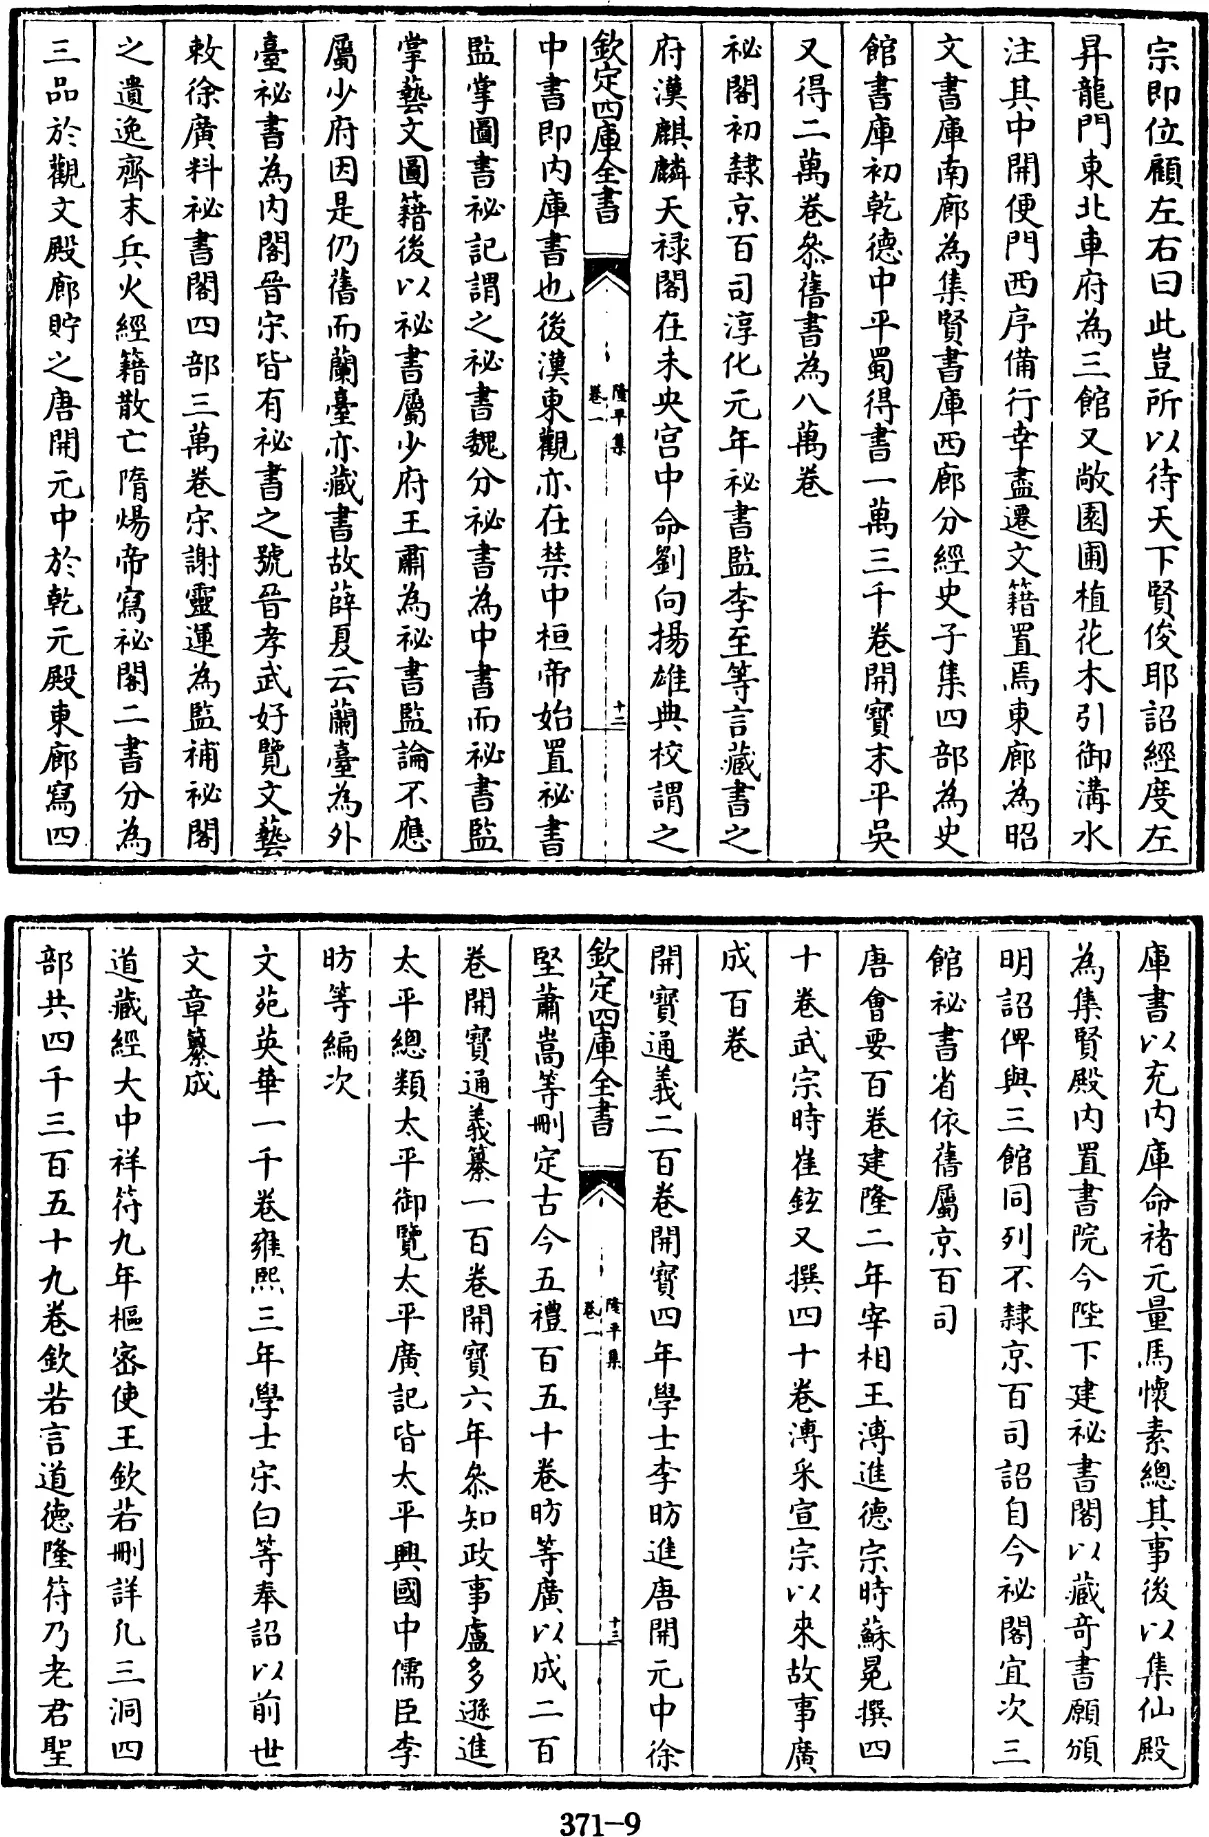 宗即位顧左右曰此豈所以待天下賢俊耶詔經度左
昇龍門東北車府為三館又敞園圃植花木引御溝水
注其中開便門西序備行幸盡遷文籍置焉東廊為昭
文書庫南廊為集賢書庫西廊分經史子集四部為史
館書庫初乾德中平蜀得書一萬三千卷開寶末平吳
又得二萬卷叅舊書為八萬卷
祕閣初隸京百司淳化元年祕書監李至等言藏書之
府漢麒麟天禄閣在未央宫中命劉向揚雄典校謂之
欽定四庫全書
隆平集
卷一
十二
中書即内庫書也後漢東觀亦在禁中桓帝始置祕書
監掌圖書祕記謂之祕書魏分祕書為中書而祕書監
掌藝文圖籍後以祕書屬少府王肅為祕書監論不應
屬少府因是仍舊而蘭臺亦藏書故薛夏云蘭臺為外
臺祕書為内閣晉宋皆有祕書之號晉孝武好覽文藝
敕徐廣料祕書閣四部三萬卷宋謝靈運為監補祕閣
之遺逸齊末兵火經籍散亡隋煬帝寫祕閣二書分為
三品於觀文殿廊貯之唐開元中於乾元殿東廊寫四
庫書以充内庫命褚元量馬懷素總其事後以集仙殿
為集賢殿内置書院今陛下建祕書閣以藏奇書願頒
明詔俾與三館同列不隸京百司詔自今祕閣宜次三
館祕書省依舊屬京百司
唐會要百卷建隆二年宰相王溥進德宗時蘇冕撰四
十卷武宗時崔鉉又撰四十卷溥采宣宗以來故事廣
成百卷
開寶通義二百卷開寶四年學士李昉進唐開元中徐
欽定四庫全書
隆平集
卷一
十三
堅蕭嵩等刪定古今五禮百五十卷昉等廣以成二百
卷開寶通義纂一百卷開寶六年叅知政事盧多遜進
太平總類太平御覽太平廣記皆太平興國中儒臣李
昉等編次
文苑英華一千卷雍熙三年學士宋白等奉詔以前世
文章纂成
道藏經大中祥符九年樞密使王欽若刪詳凡三洞四
部共四千三百五十九卷欽若言道德隆符乃老君聖
371-9